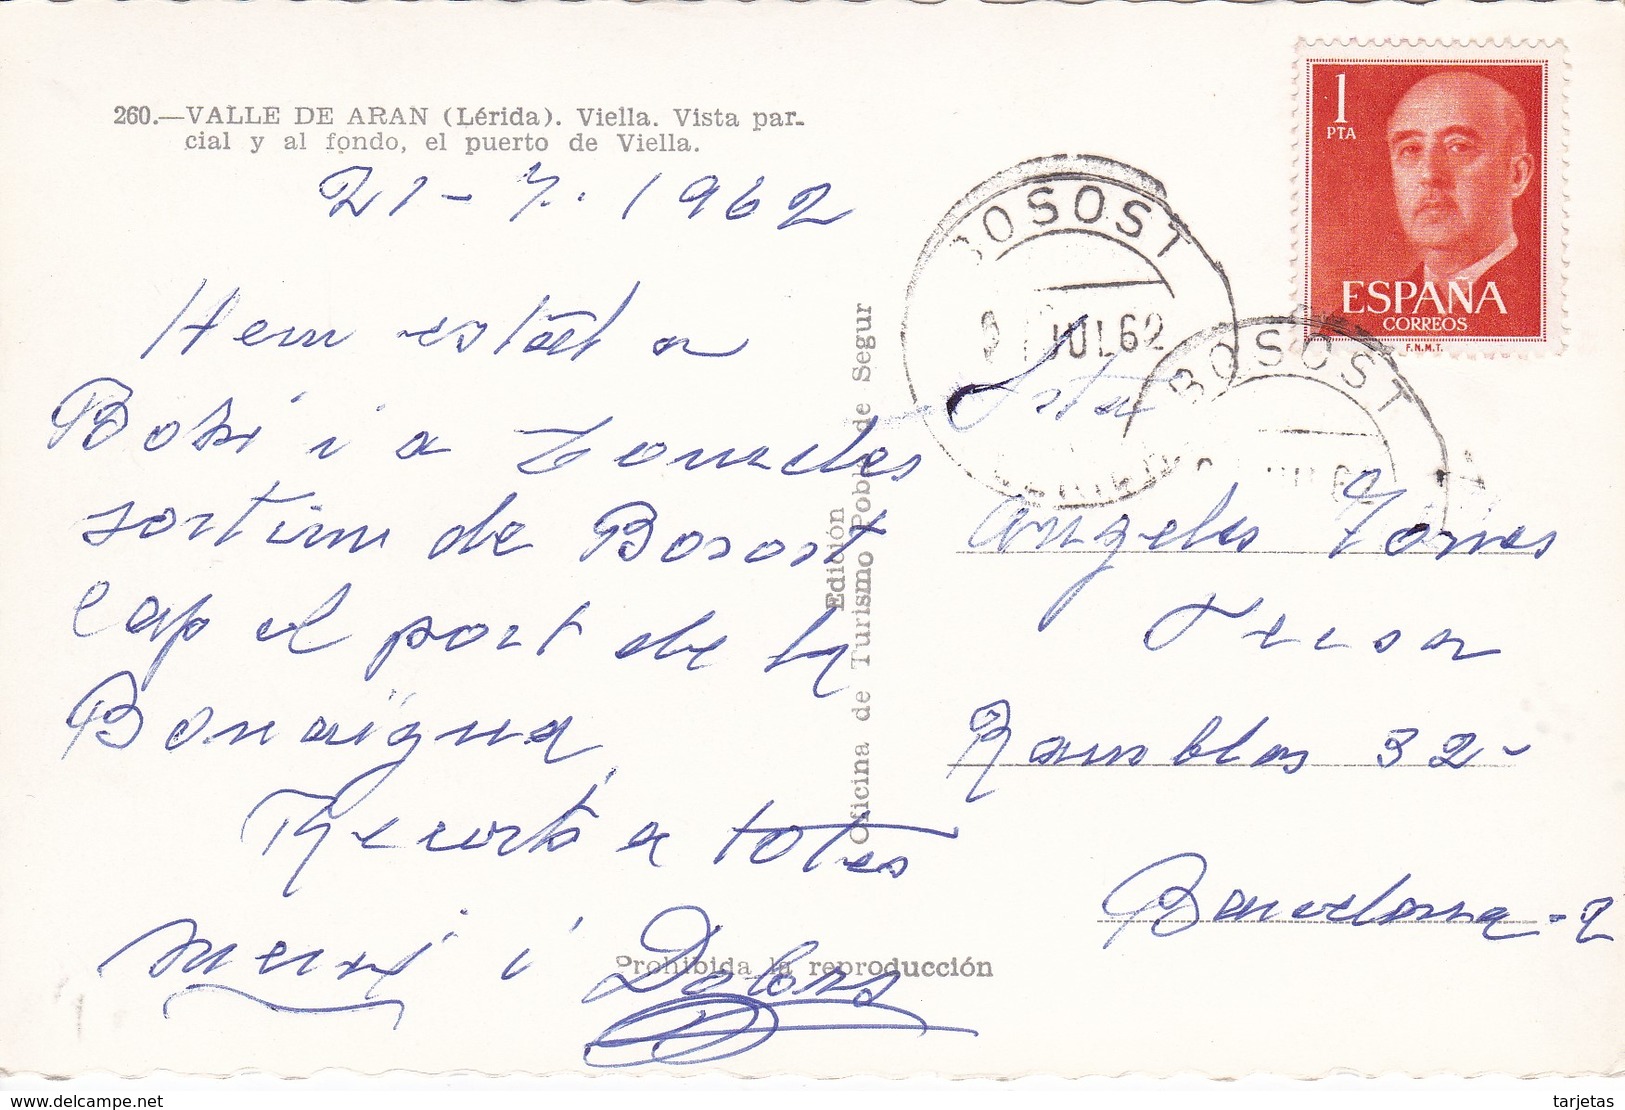 260.—VALLE DE ARAN (Lérida). Viella. Vista par-
cial y al fondo, el puerto de Viella.
21-7-1962
Hem estat a
i a
sortim de Bosost
cap el port de la
Bonaigua
Records a totes
Meri i Dolors
Edición
Oficina de Turismo Pobla de Segur
Prohibida la reproducción
1
PTA
ESPAÑA
CORREOS
F.N.M.T.
BOSOST
JUL 62
BOSOST
Angeles
Ramblas 32-
Barcelona-2
delcampe.net
tarjetas